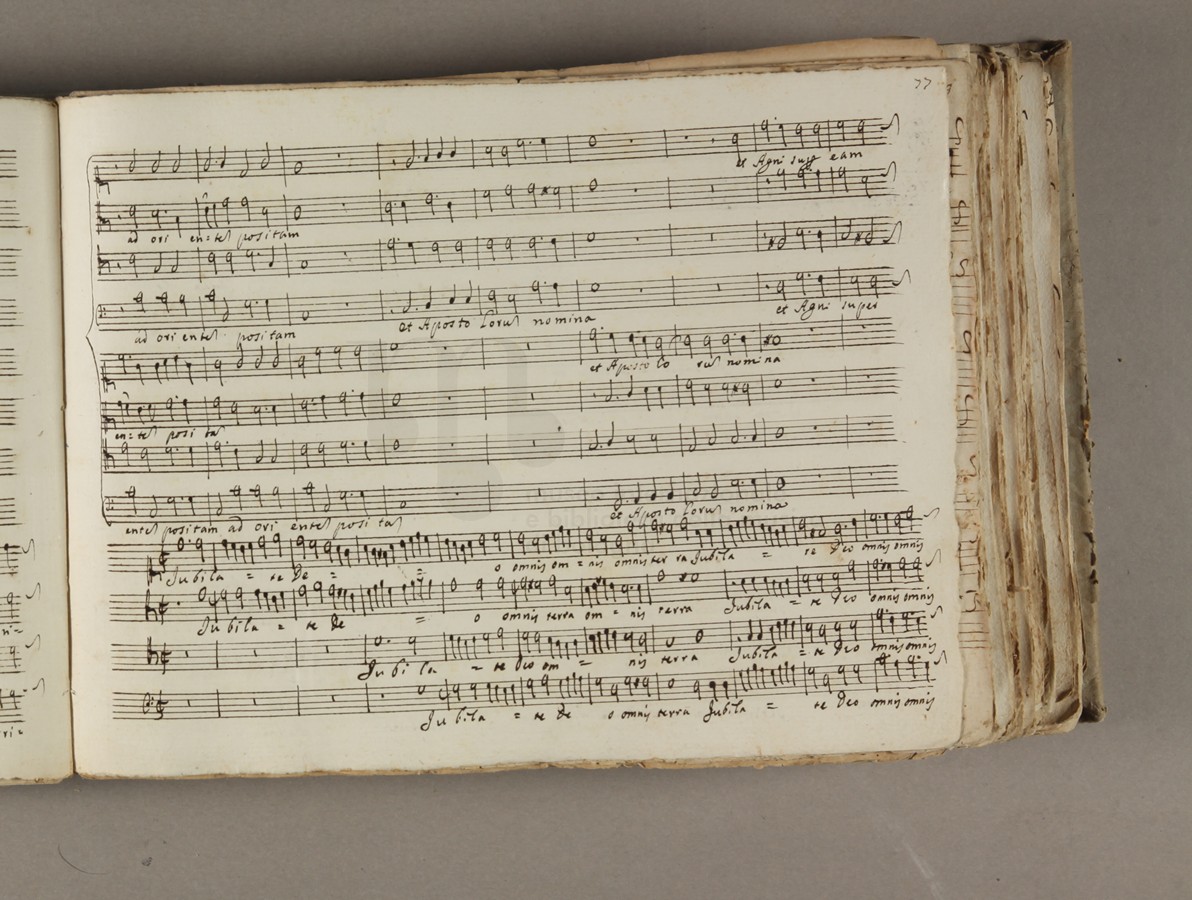 77
et Agni sup eam
ad ori en=tes positam
et Agni super
ad ori entes positam et Aposto lorus nomina
et Aposto lo rus nomina
en=tes posi ta
et Aposto lorus nomina
entes positam ad ori entes posi ta
Jubila = te De = = o omnis om = nis omnis ter ra Jubila = te Deo omnis omnis
Jubila = te De = o omnis terra om = nis terra Jubila = te Deo omnis omnis
Jubi la = te Deo om = nis terra Jubila = te Deo omnis omnis
Jubila = te De o omnis terra Jubila = te Deo omnis omnis